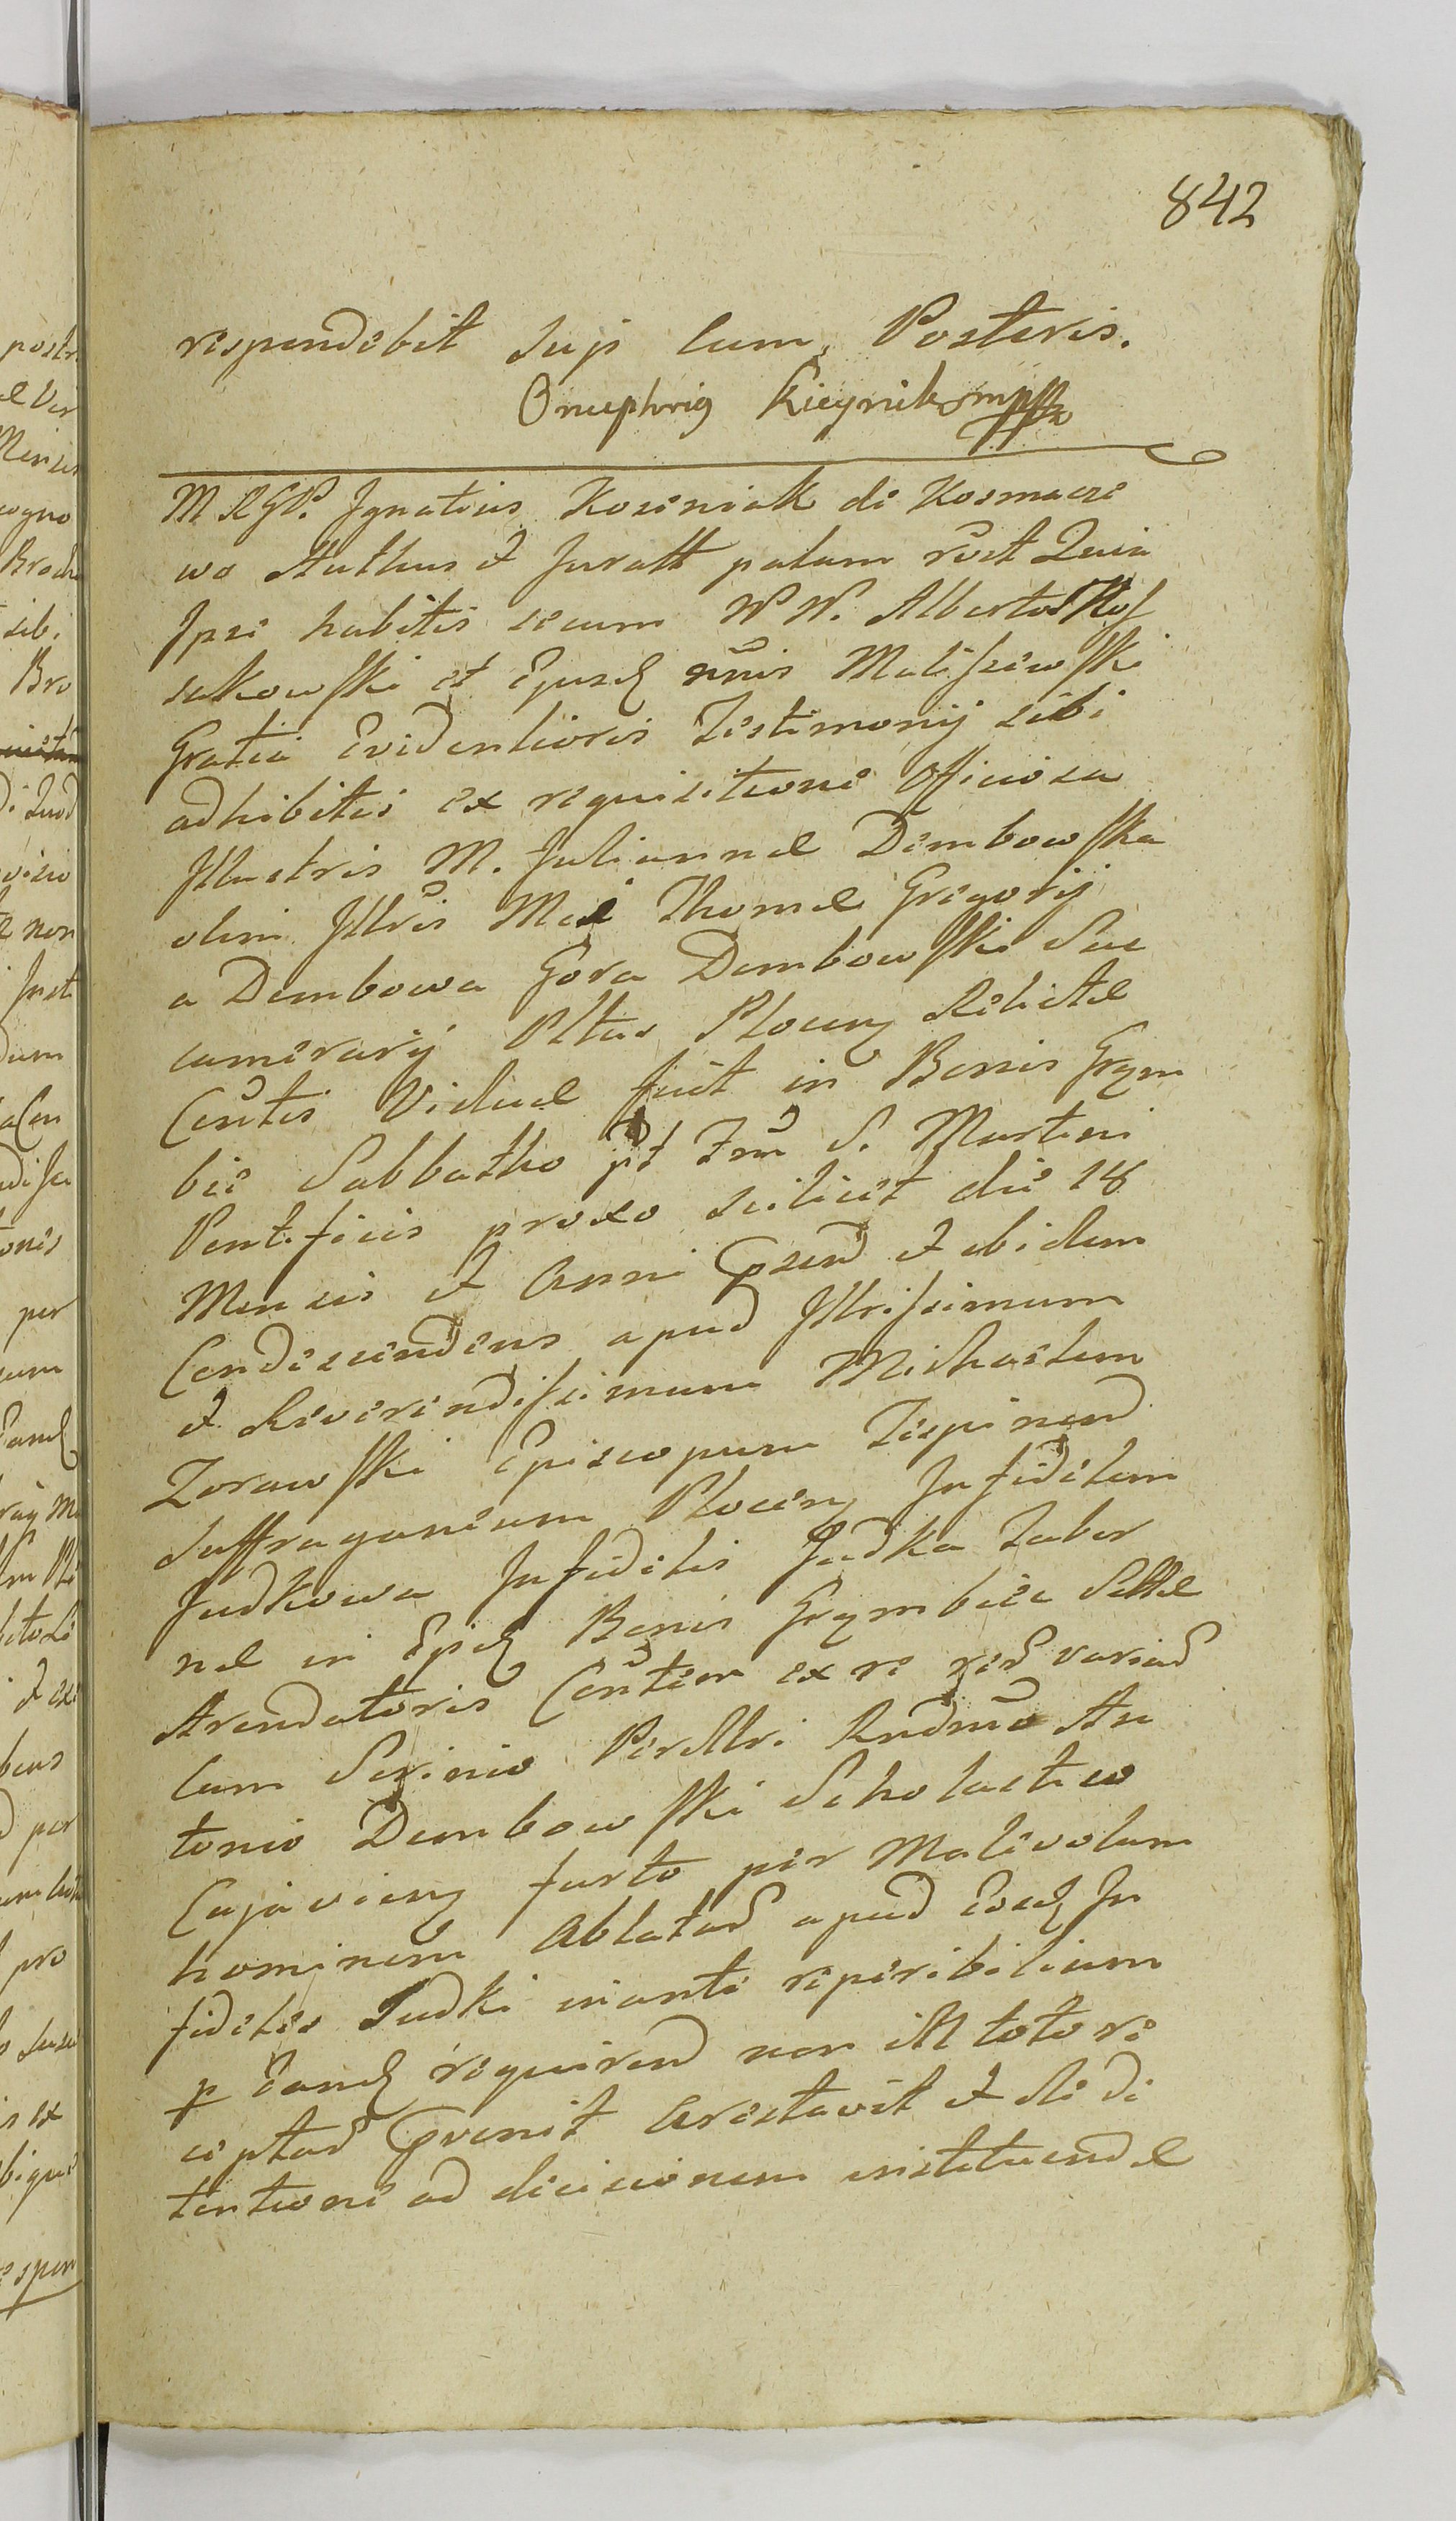 842
respondebit Suji Cum Posteris.
Onuphrig Kieynik mpp
M RGP. Ignatius Koseniak de Kosmacze
wo Authus et Juratt palam rčt Quia
Ipse habitis secum NN. Alberto Ros
sukowski et Ejusd nñis Maliszewski
Gratia Evidentioris Testimonij sibi
adhibitis ex requisitione Officiosa
Illustris M. Juliannæ Dembowska
olim Illris Mei Thomæ Gregorij
a Dembowa Gora Dembowski Suc
camerarij Pltus Plocen Relictæ
Centis Viduæ fuit in Bonis Grem
bie Sabbatho pt Fm S. Martini
Pontificis proxo scilicet die 18
Mensis et Anni Prsend et ibidem
Condescendens apud Illrissimum
et Reverendissimum Michaelem
Zorawski Episcopum Tespinend
Suffraganeum Plocen Infidelem
Judkowa Infidelis Judka Taber
næ in Ejsd Bonis Grzmbice Sittæ
Arendatoris Centem ex re rerd variad
Cum Scrinio Perillri Rndmo An
tonio Dembowski Scholastico
Cujavien furto per Malevolum
hominem Ablatad apud Eosd In
fideles Judki inante reperibilium
p Eand requirend non ill toto re
ceptad Prvenit Arestavit et de De
tentione ad decisionem instituendæ